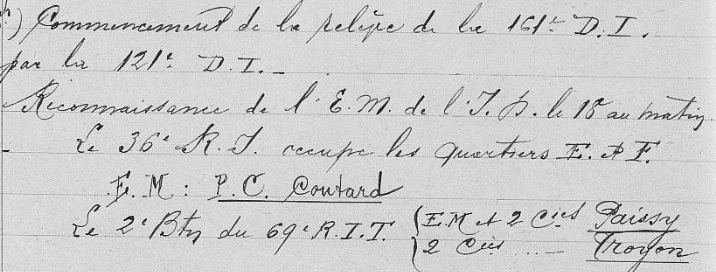 ) Commencement de la relève de la 161e D.I.
par la 121e D.I. -
Reconnaissance de l'E.M. de l'I.D. le 18 au matin.
- Le 36e R.I. occupe les quartiers E. et F.
E.M : P.C. Coutard
Le 2e Btn du 69e R.I.T. { E.M et 2 Cies Paissy
{ 2 Cies .... - Troyon